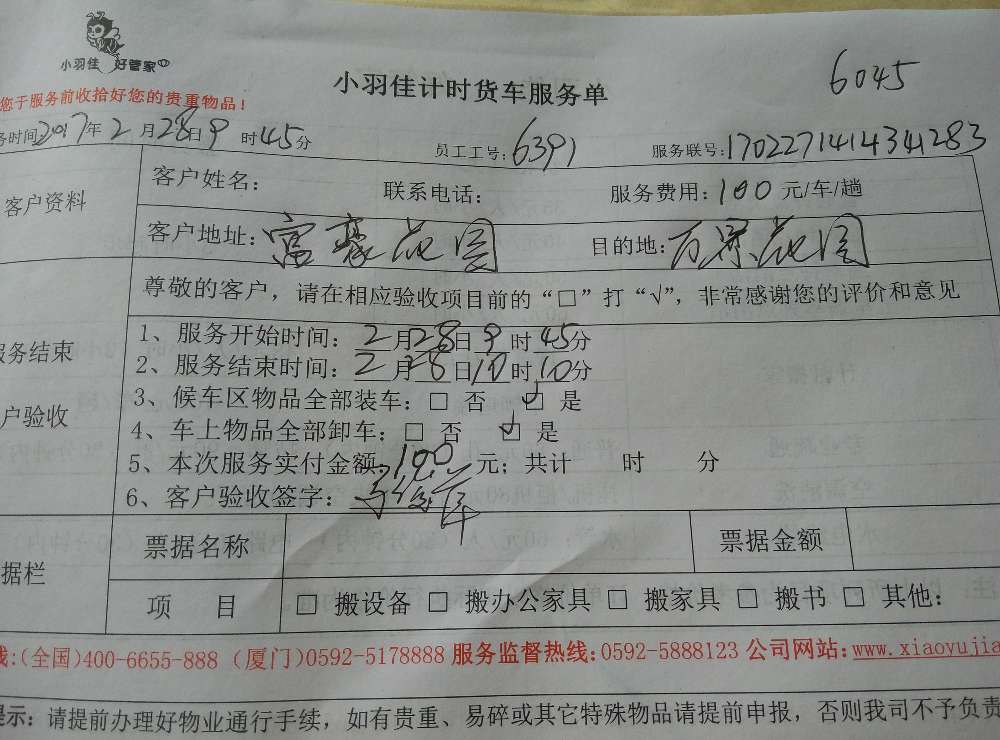 小羽佳 好管家
小羽佳计时货车服务单
6045
您于服务前收拾好您的贵重物品！
务时间2017年2月28日9时45分
员工工号：6391
服务联号：170227141434128​3
客户资料
客户姓名： 联系电话： 服务费用：100元/车/趟
客户地址：富豪花园 目的地：万景花园
尊敬的客户，请在相应验收项目前的“□”打“√”，非常感谢您的评价和意见
服务结束
户验收
1、服务开始时间：2月28日9时45分
2、服务结束时间：2月28日10时10分
3、候车区物品全部装车：□ 否 ☑ 是
4、车上物品全部卸车：□ 否 ☑ 是
5、本次服务实付金额：100元；共计 时 分
6、客户验收签字：
据栏
票据名称 票据金额
项 目 □ 搬设备 □ 搬办公家具 □ 搬家具 □ 搬书 □ 其他：
线：(全国)400-6655-888 (厦门)0592-5178888 服务监督热线：0592-5888123 公司网站：www.xiaoyujia
提示：请提前办理好物业通行手续，如有贵重、易碎或其它特殊物品请提前申报，否则我司不予负责